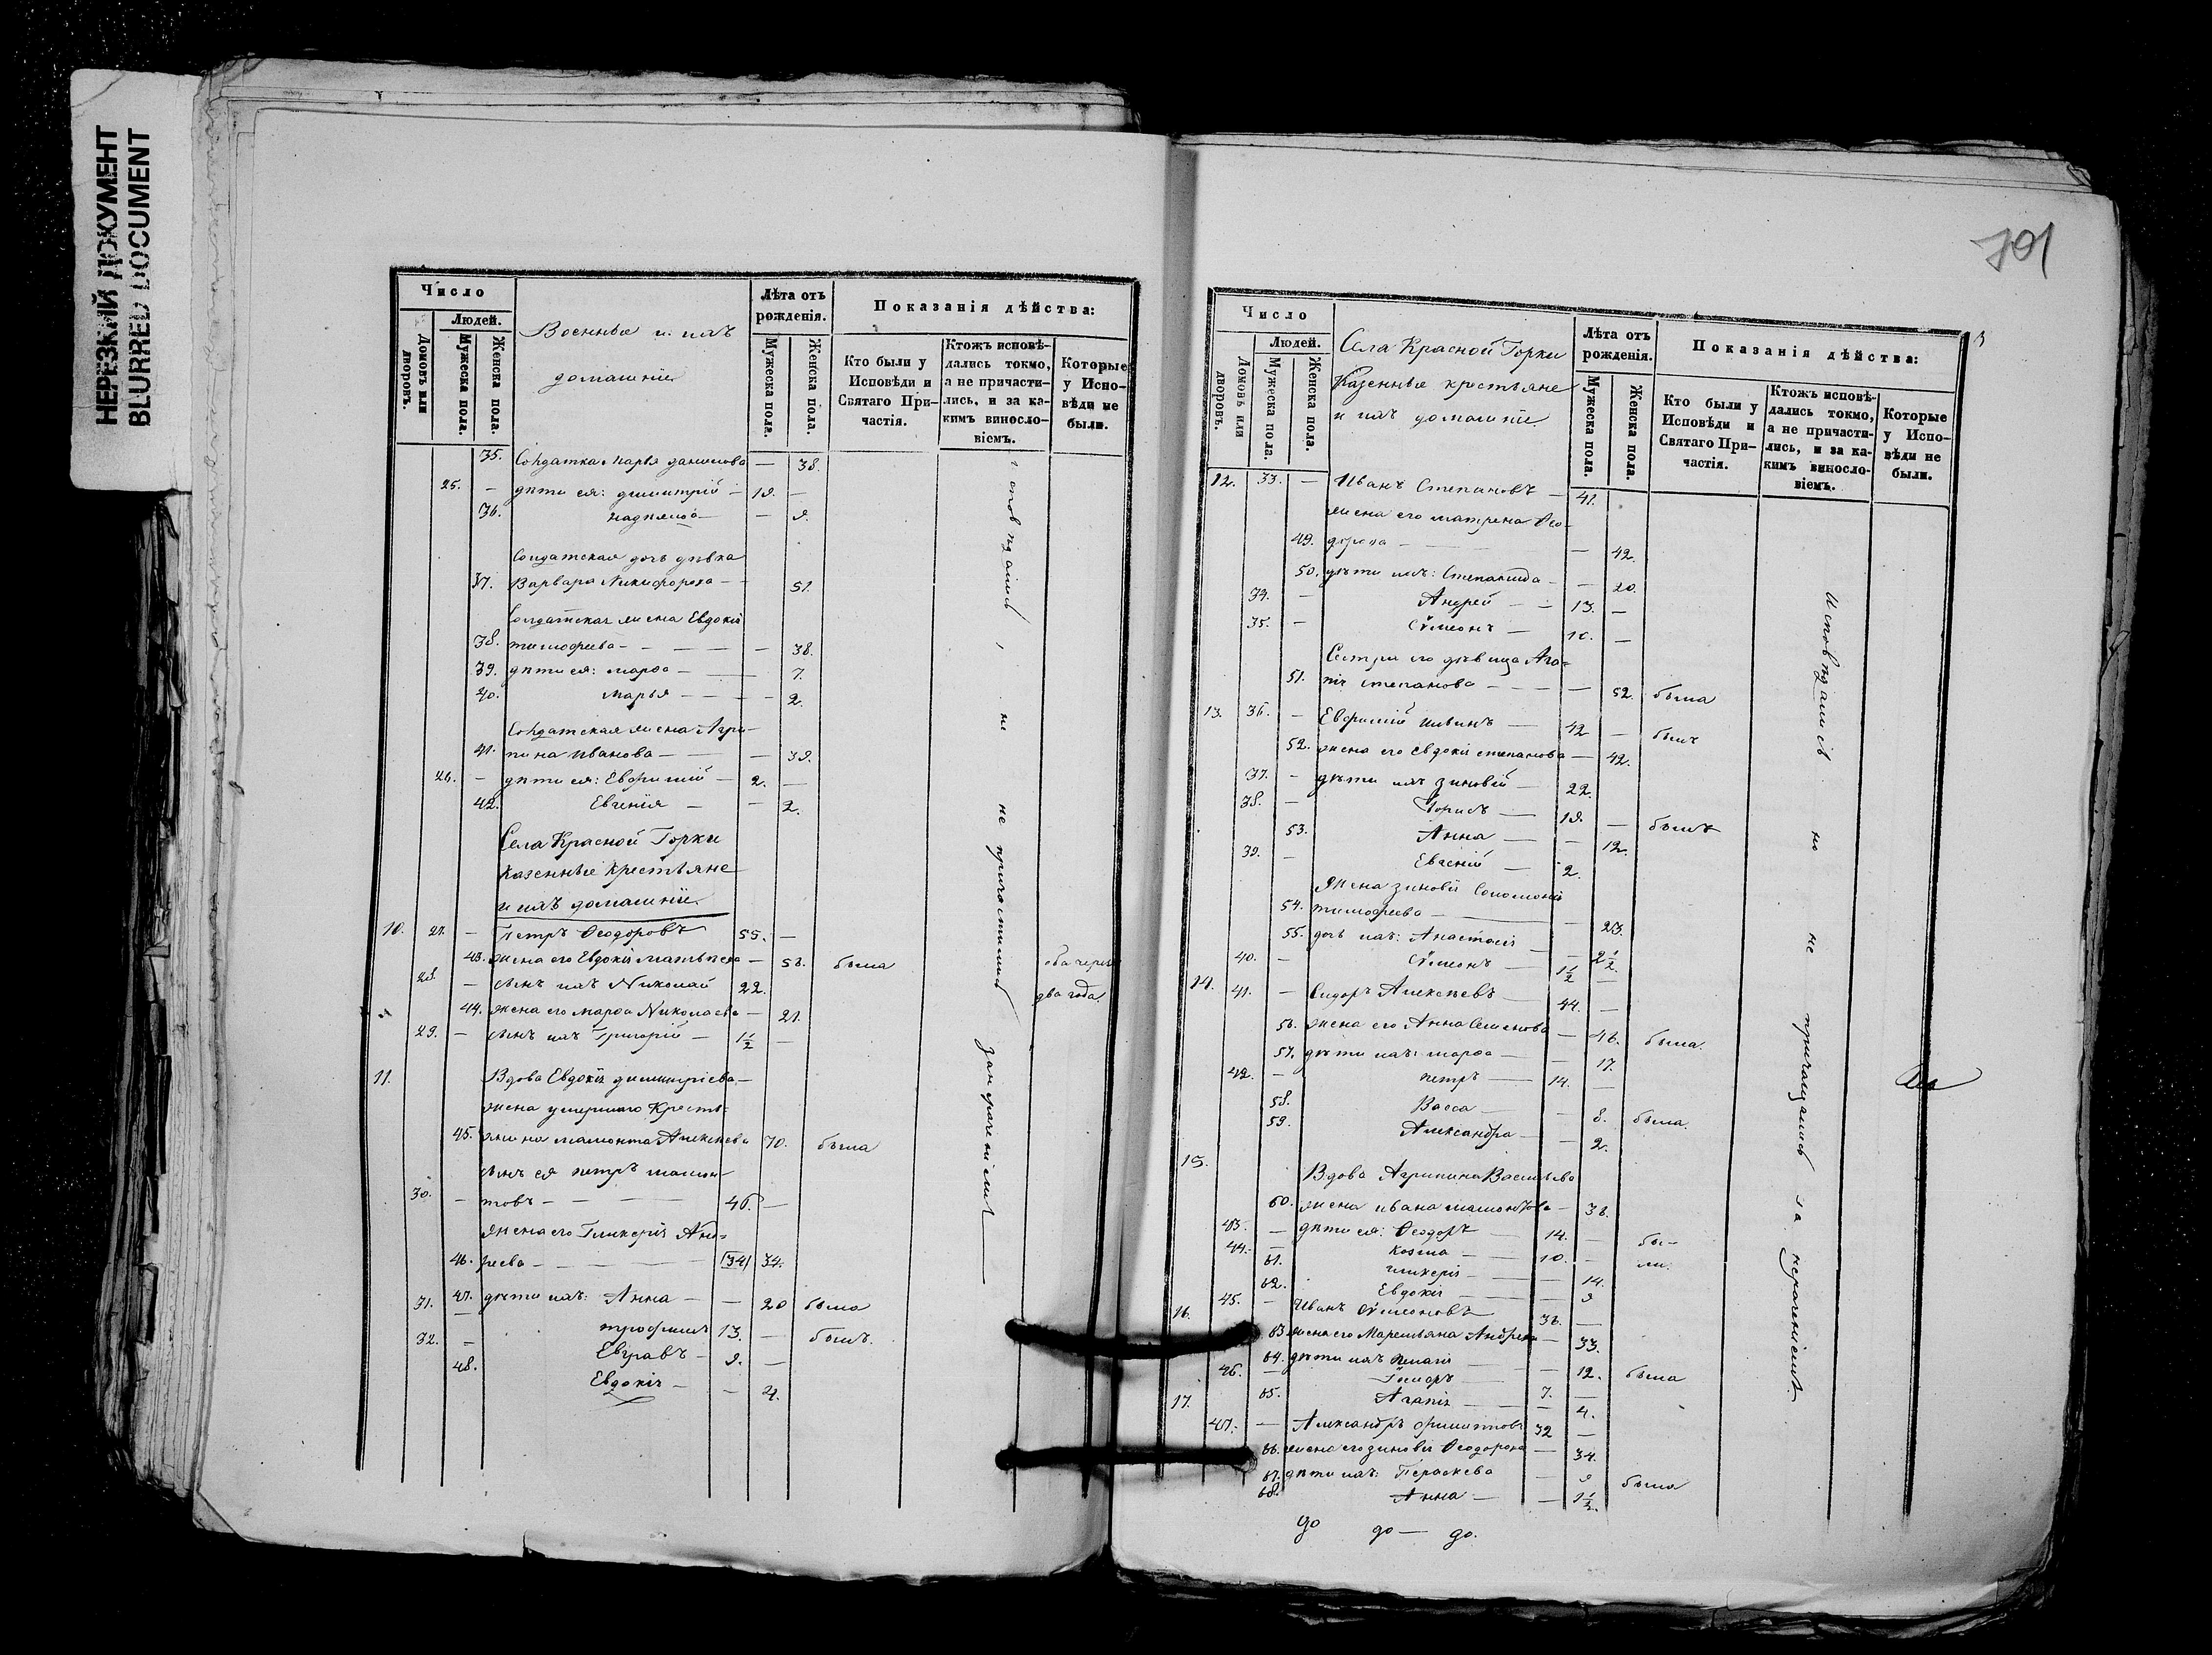 НЕРЕЗКИЙ ДОКУМЕНТ
BLURRED DOCUMENT
Число
Людей.
Домовъ или дворовъ.
Мужеска пола.
Женска пола.
Военные и ихъ
домашніе
Лѣта отъ рожденія.
Мужеска пола.
Женска пола.
Показанія дѣйства:
Кто были у Исповѣди и Святаго Причастія.
Ктожъ исповѣдались токмо, а не причастились, и за какимъ винословіемъ.
Которые у Исповѣди не были.
35. Солдатка Марья Данилова — 38.
25. — дѣти ея: Димитрій — 19. —
36. Надежда — — 9.
Солдатская дочь дѣвка
37. Варвара Никифорова — — 51.
Солдатская жена Евдокія
38. Тимофеева — — — — 38.
39. дѣти ея: Марѳа — — 7.
40. Марья — — — 2.
Солдатская жена Агри-
41. пина Иванова — — — 39.
26. — дѣти ея: Евфимій — 2. —
42. Евгенія — — 2.
Села Красной Горки
Казенные Крестьяне
и ихъ домашніе
10. 27. — Петръ Ѳеодоровъ 55. —
43. жена его Евдокія Матвѣева — 58. была
28. — сынъ ихъ Николай 22.
оба чрезъ
два года.
44. жена его Марѳа Николаева — 21.
29. — сынъ ихъ Григорій — 1½ —
11. Вдова Евдокія Димитріева —
жена умершаго Кресть-
45. янина Мамонта Алексѣева 70. была
сынъ ея Петръ Мамон-
30. — товъ — — — 46. —
жена его Гликерія Анд-
46. реева — — — — 34 34.
47. дѣти ихъ: Анна — — 20 была
31. — Трофимъ 13. — былъ.
32. — Евграфъ — 9. —
48. Евдокія — — 4.
исповѣдались, но не причастились за нерачениемъ
701
Число
Людей.
Домовъ или дворовъ.
Мужеска пола.
Женска пола.
Села Красной Горки
Казенные крестьяне
и ихъ домашніе
Лѣта отъ рожденія.
Мужеска пола.
Женска пола.
Показанія дѣйства:
Кто были у Исповѣди и Святаго Причастія.
Ктожъ исповѣдались токмо, а не причастились, и за какимъ винословіемъ.
Которые у Исповѣди не были.
12. 33. — Иванъ Степановъ — 41.
жена его Матрена Ѳео-
49. дорова — — — 42.
50. дѣти ихъ: Степанида — — 20.
34. — Андрей — — 13. —
35. — Сѵмеонъ — 10. —
Сестра его дѣвица Ага-
51. пія Степанова — — — — 52. была
13. 36. — Евфимій Ивинъ — 42 — былъ
52. жена его Евдокія Степанова — 42.
37. — дѣти ихъ Зиновій — 22.
38. — Борисъ — 19. — былъ
53. Анна — — 12.
39. — Евгеній — 2.
Жена Зиновія Соломонія
54. Тимофеева — — 23.
55. дочь ихъ: Анастасія — — 2½.
40. — Сѵмеонъ — 1½ —
14. 41. — Сидоръ Алексѣевъ — 44. —
56. жена его Анна Семенова — 46. была.
57. дѣти ихъ: Марѳа — — 17.
42. — Петръ — 14. —
58. Васса — — 8. была.
59. Александра — — 2.
15. Вдова Агрипина Васильева
60. жена Ивана Мамонтова — 38.
43. — дѣти ея: Ѳеодоръ — 14. — бы-
44. — Козма — — 10. — ли.
61. Гликерія — — — 14.
62. Евдокія — — — 9
16. 45. — Иванъ Сѵмеоновъ 38. —
63 жена его Маремьяна Андреева — 33.
64. дѣти ихъ Пелагія — — 12. была
46. — 7. —
65. Агапія — — — 4.
17. 47. — Александръ Филиповъ 32 —
66. жена его Зиновія Ѳеодорова — 34.
67. дѣти ихъ: Параскева — 9 была
68. Анна — — 1½.
Исповѣдались но не причащались за нерачениемъ.
до до — до.